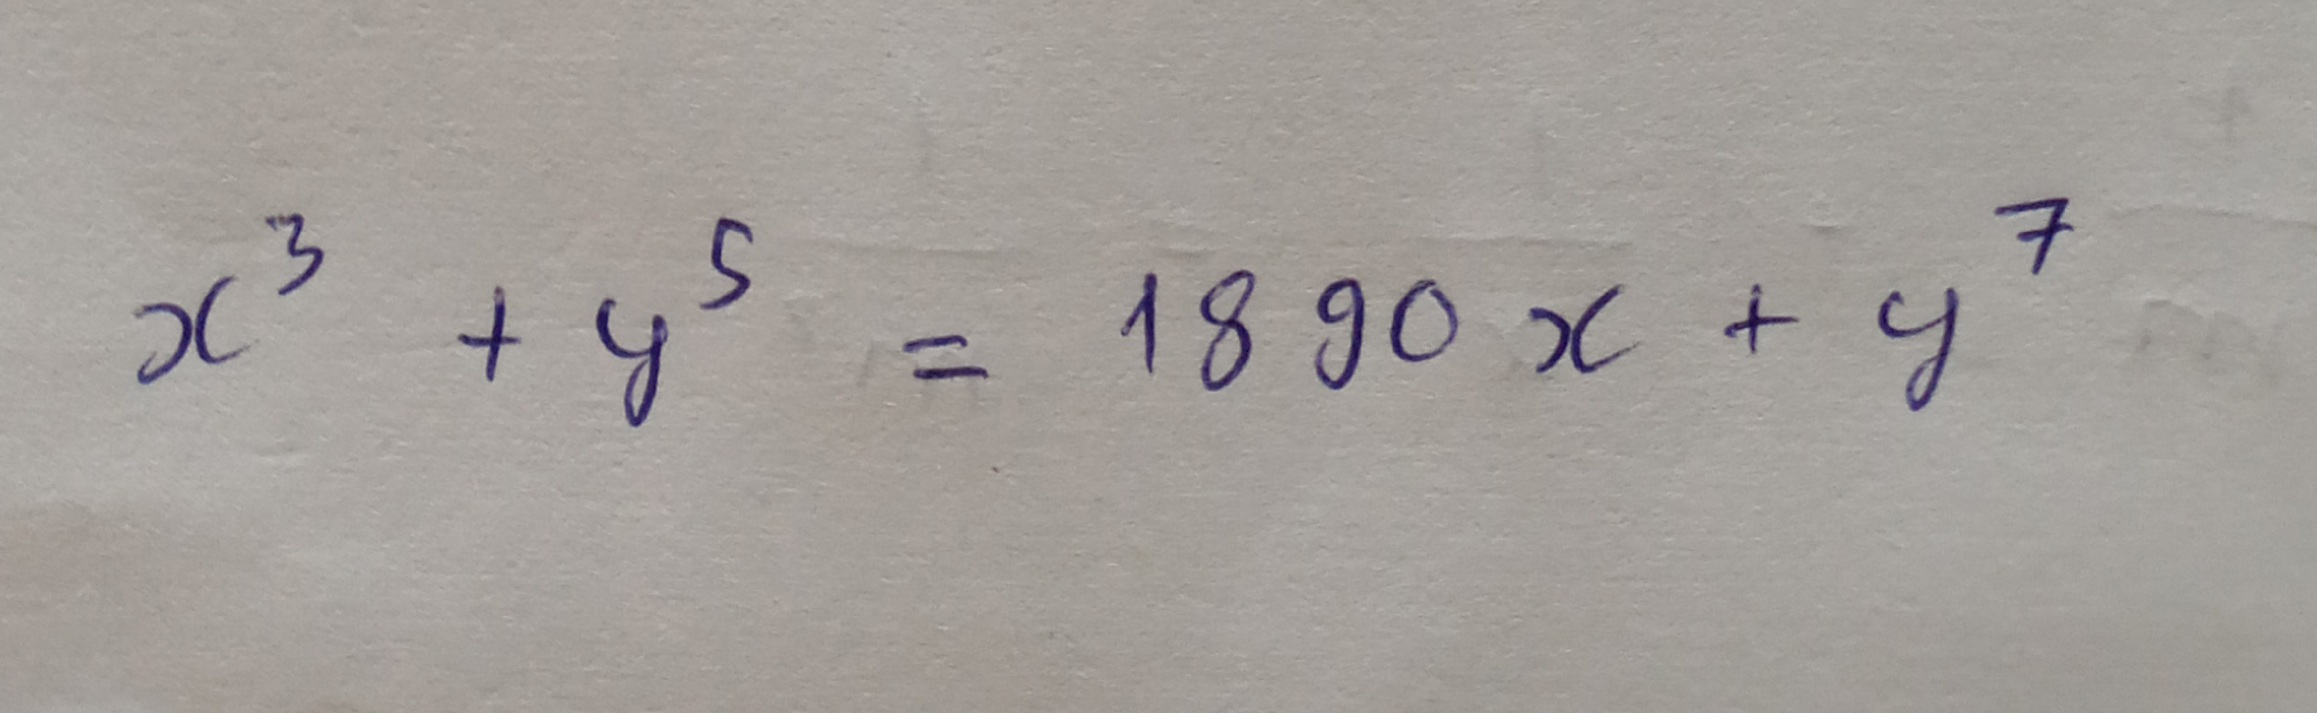 x³ + y⁵ = 1890x + y⁷